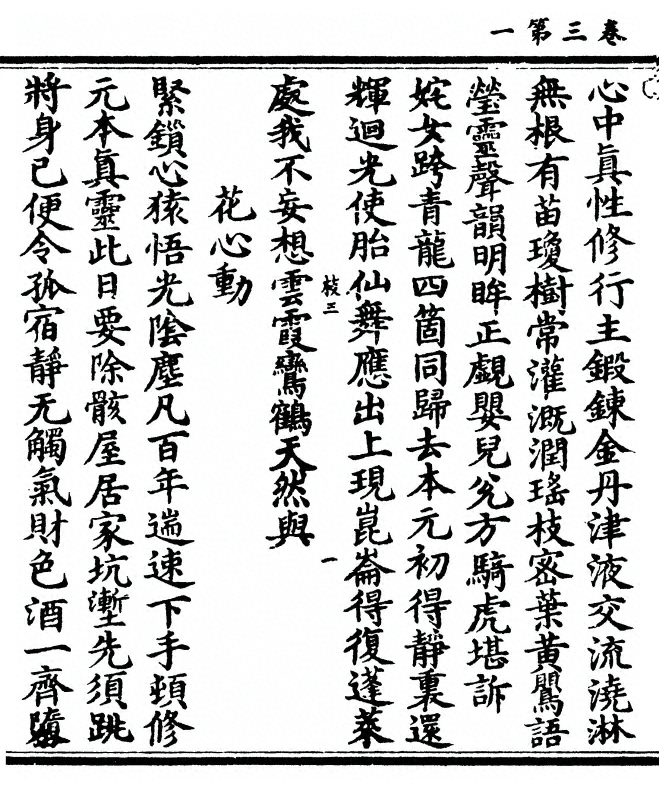 卷三第一
心中眞性修行主鍛鍊金丹津液交流澆淋
無根有苗瓊樹常灌漑潤瑤枝密葉黃鸎語
瑩靈聲韻明眸正覷嬰兒兊方騎虎堪訴
姹女跨青龍四箇同歸去本元初得靜裏還
輝迴光使胎仙舞應出上現崑崙得復蓬萊
處我不妄想雲霞鸞鶴天然與
枝三
一
花心動
緊鎖心猿悟光陰塵凡百年遄速下手頓修
元本眞靈此日要除骸屋居家坑塹先須跳
將身己便令孤宿靜无觸氣財色酒一齊隳